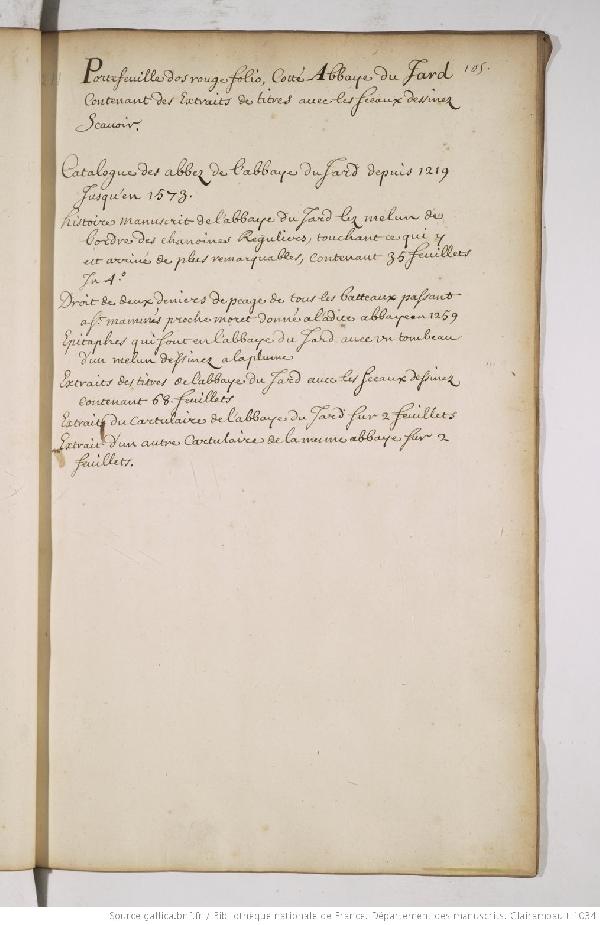 105.
Portefeuille dos rouge folio, Cotté Abbaye du Jard
Contenant des Extraits de titres avec les sceaux dessinez
Scavoir,
Catalogue des abbez de l'abbaye du Jard depuis 1219
Jusqu'en 1573.
histoire manuscrit de l'abbaye du Jard lez melun de
l'ordre des chanoines Regulieres, touchant ce qui y
est arrivé de plus remarquables, contenant 35 feuillets
In 4.º
Droit de deux deniers de peage de tous les batteaux passant
a St. mammés proche moret donné a ladite abbaye en 1259
Epitaphes qui sont en l'abbaye du Jard avec un tombeau
d'un melun dessinez a la plume
Extraits des titres de l'abbaye du Jard avec les sceaux dessinez
contenant 68 feuillets
Extrait du Cartulaire de l'abbaye du Jard sur 2 feuillets
Extrait d'un autre Cartulaire de la meme abbaye sur 2
feuillets.
Source gallica.bnf.fr / Bibliothèque nationale de France. Département des manuscrits. Clairambault 1034